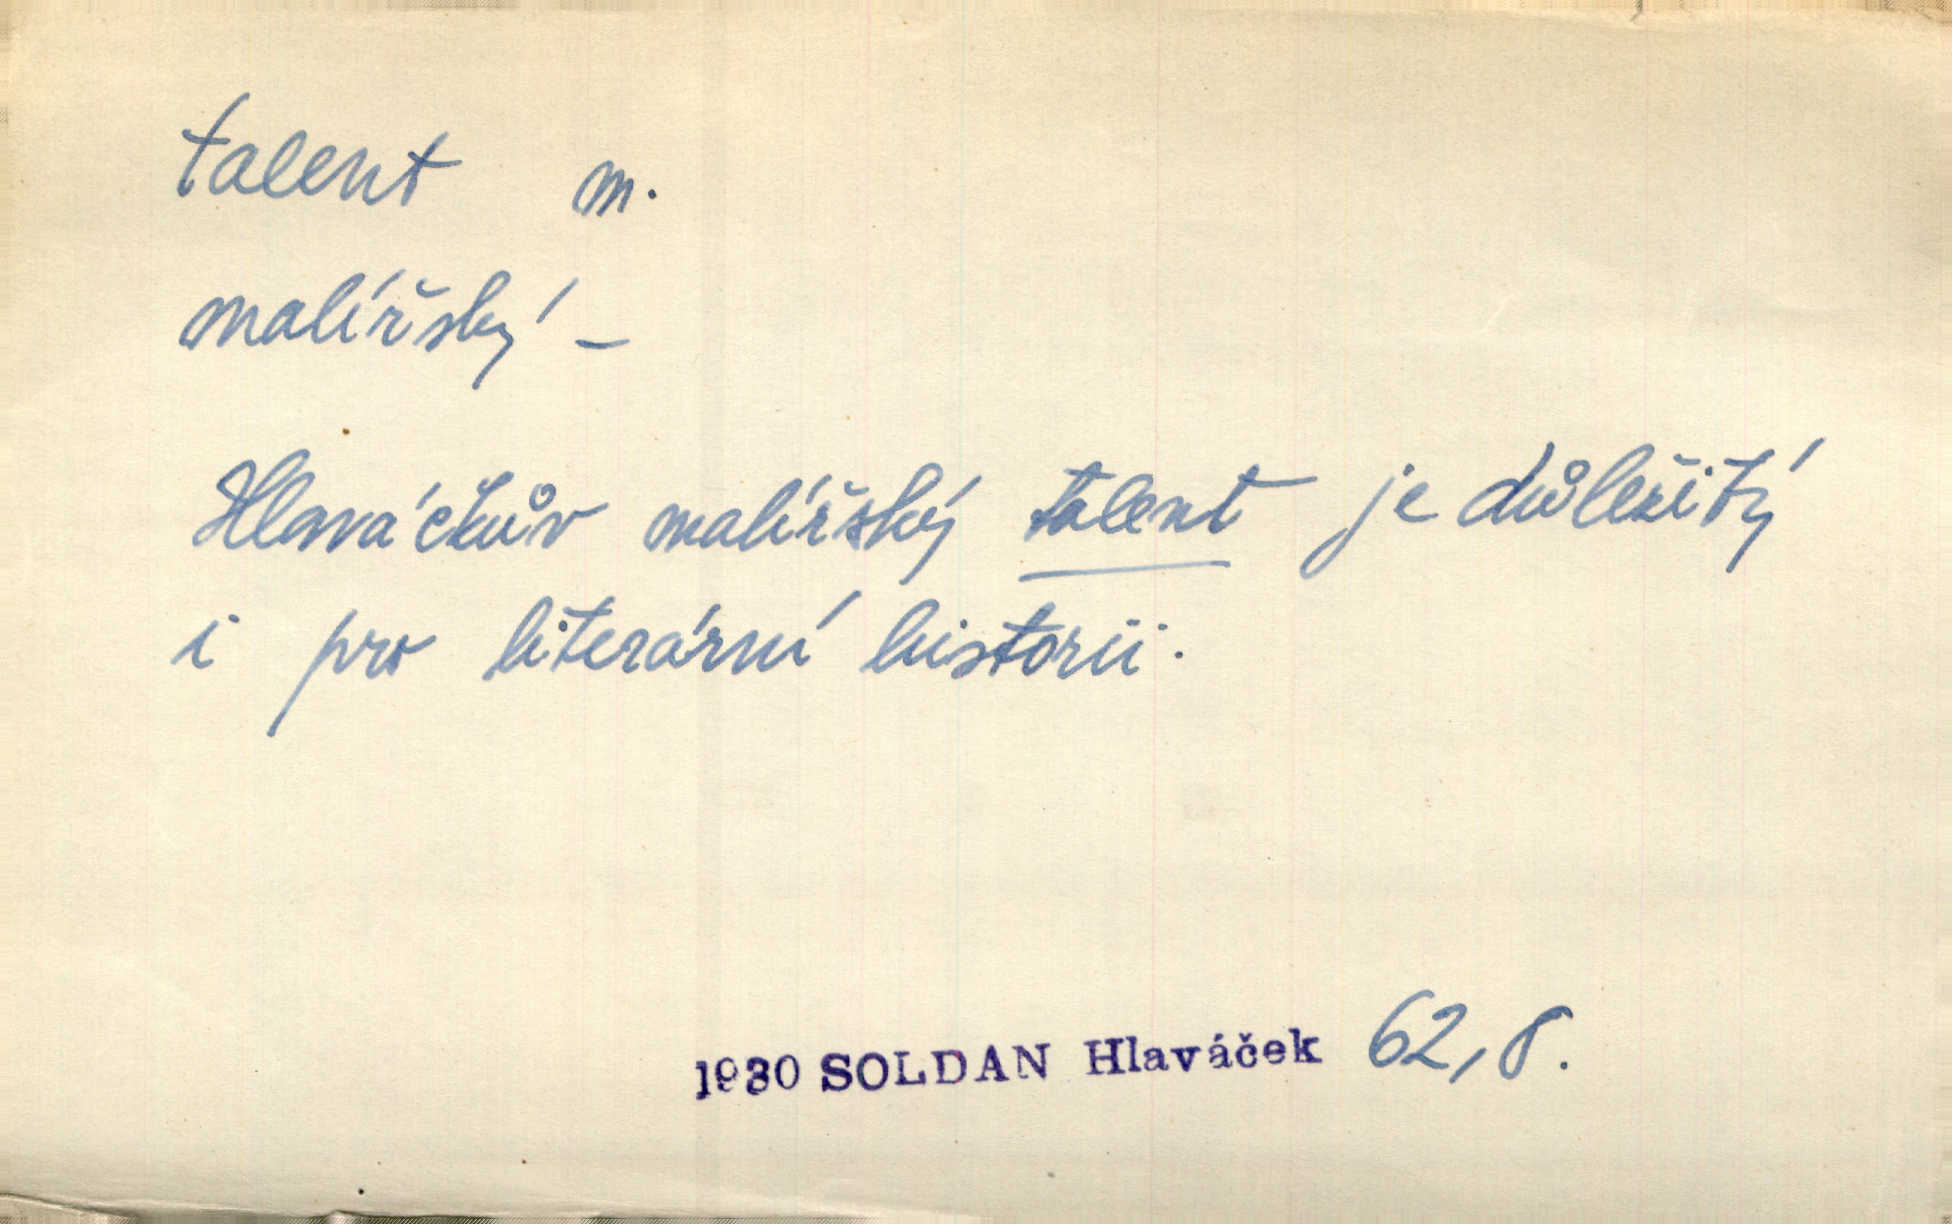 talent m.
malířský –
Hlaváčkův malířský talent je důležitý
i pro literární historii.
1930 SOLDAN Hlaváček 62, 8.